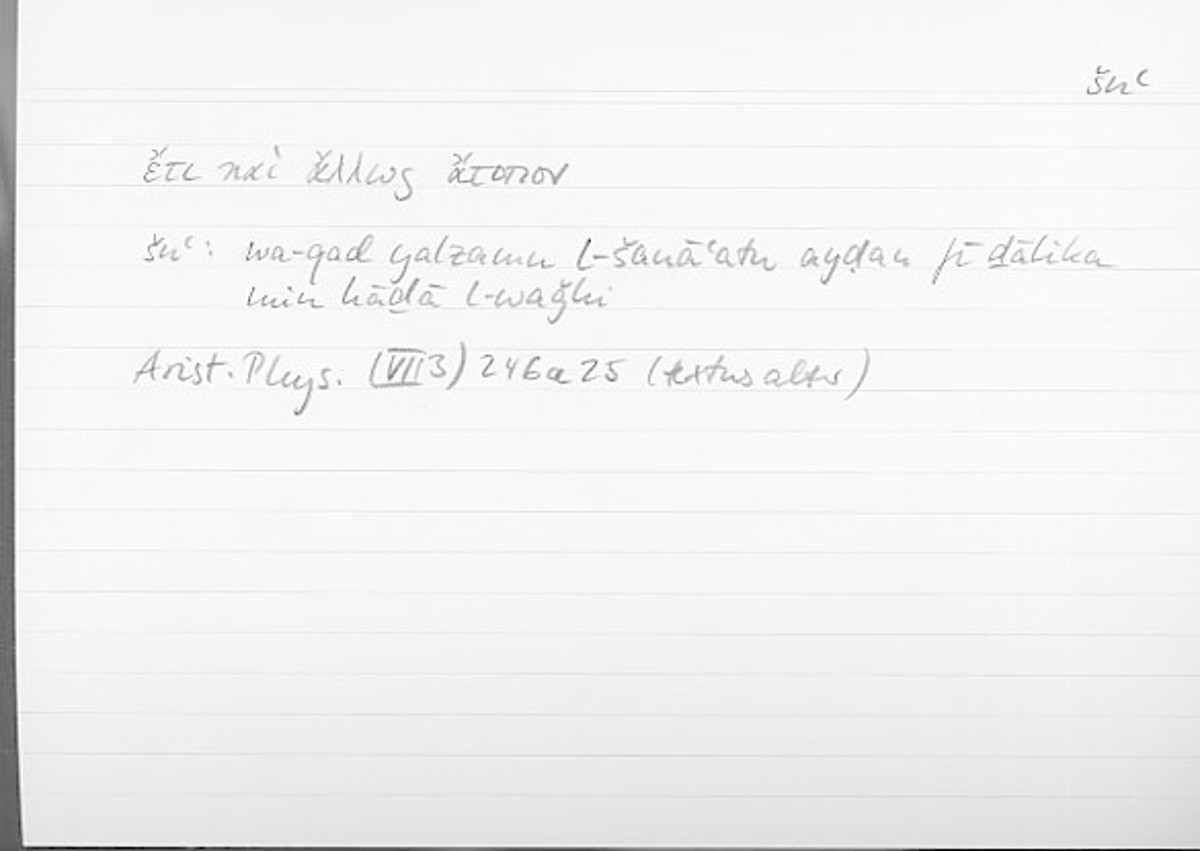 šnʿ
ἔτι καὶ ἄλλως ἄτοπον
šnʿ: wa-qad yalzamu l-šanāʿatu ayḍan fī ḏālika
min hāḏā l-waǧhi
Arist. Phys. (VII 3) 246a25 (textus alter)